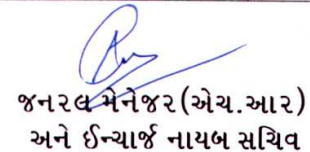 જનરલ મેનેજર(એચ.આર)
અને ઈન્ચાર્જ નાયબ સચિવ